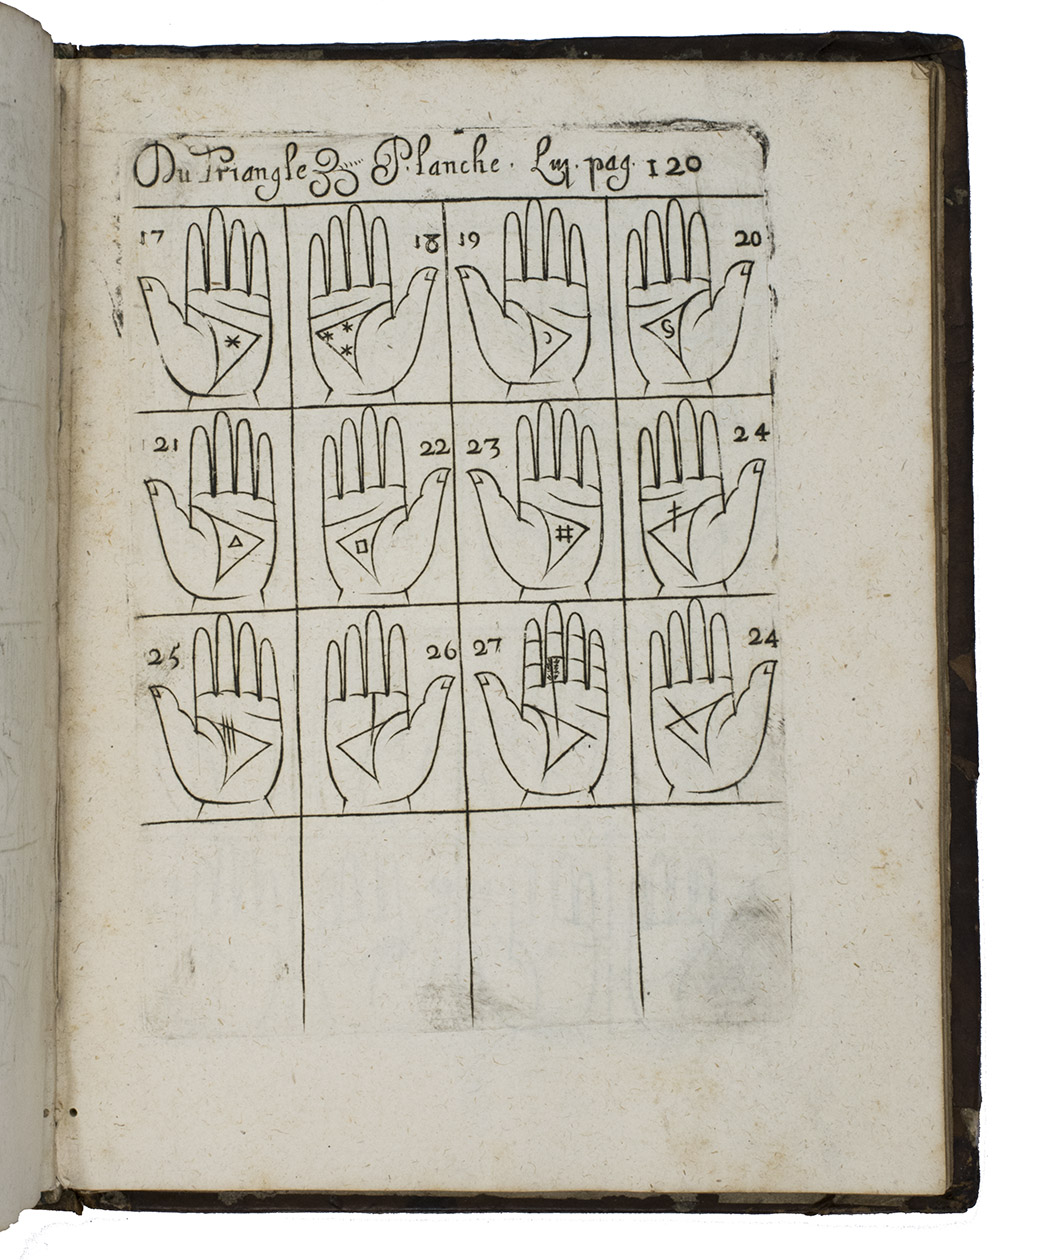 Du Triangle Planche. pag. 120
17 18 19 20
21 22 23 24
25 26 27 24